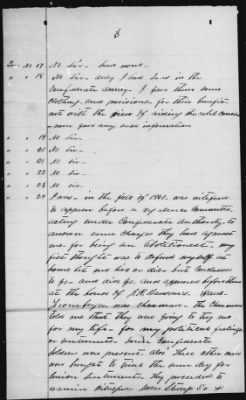 3
Int No 17 No Sir - Gave none.
" " 18 No Sir - only I had Sons in the
Confederate Army - I gave them some
clothing and provisions for their benefit
not with the view of aiding the rebel cause
gave any such information
" " 19 No Sir
" " 20 No Sir
" " 21 No Sir
" " 22 No Sir
" " 23 No Sir
" " 24 I was - in the fall of 1861. was notified
to appear before a vigilance committee,
acting under Confederate Authority to
answer some charges they had against
me for being an Abolitionist - my
first thought was to defend myself at
home let me live or die but concluded
to go and also go. I did appear before them
at the house of
was Chairman - The Chairman
told me that they were going to try me
for my life - for my political feelings
or sentiments - some Confederate
soldiers was present, also three other men
was brought to trial the same day for
Union Sentiments - They proceeded to
examine witnesses